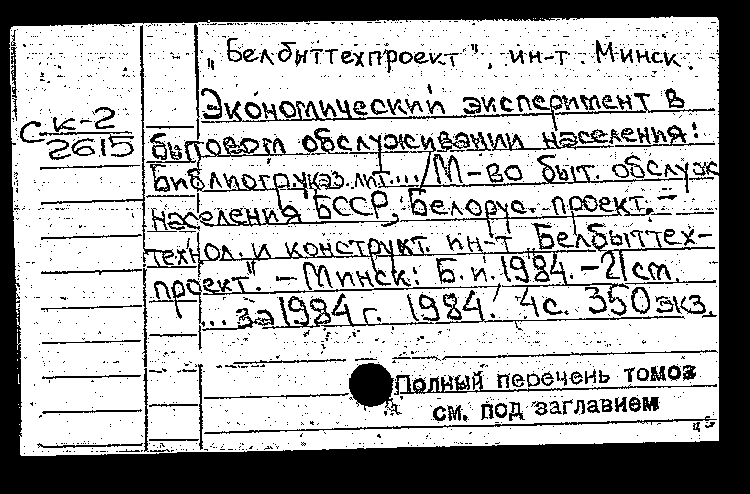 „Белбыттехпроект", ин-т. Минск.
Экономический эксперимент в
С к-2
2615
бытовом обслуживании населения:
Библиогр. указ. лит..../М-во быт. обслуж
населения БССР, Белорус. проект.-
технол. и конструкт. ин-т „Белбыттех-
проект". – Минск: Б.и. 1984. – 21 см.
... за 1984 г. 1984. 4 с. 350 экз.
Полный перечень томов
см. под заглавием